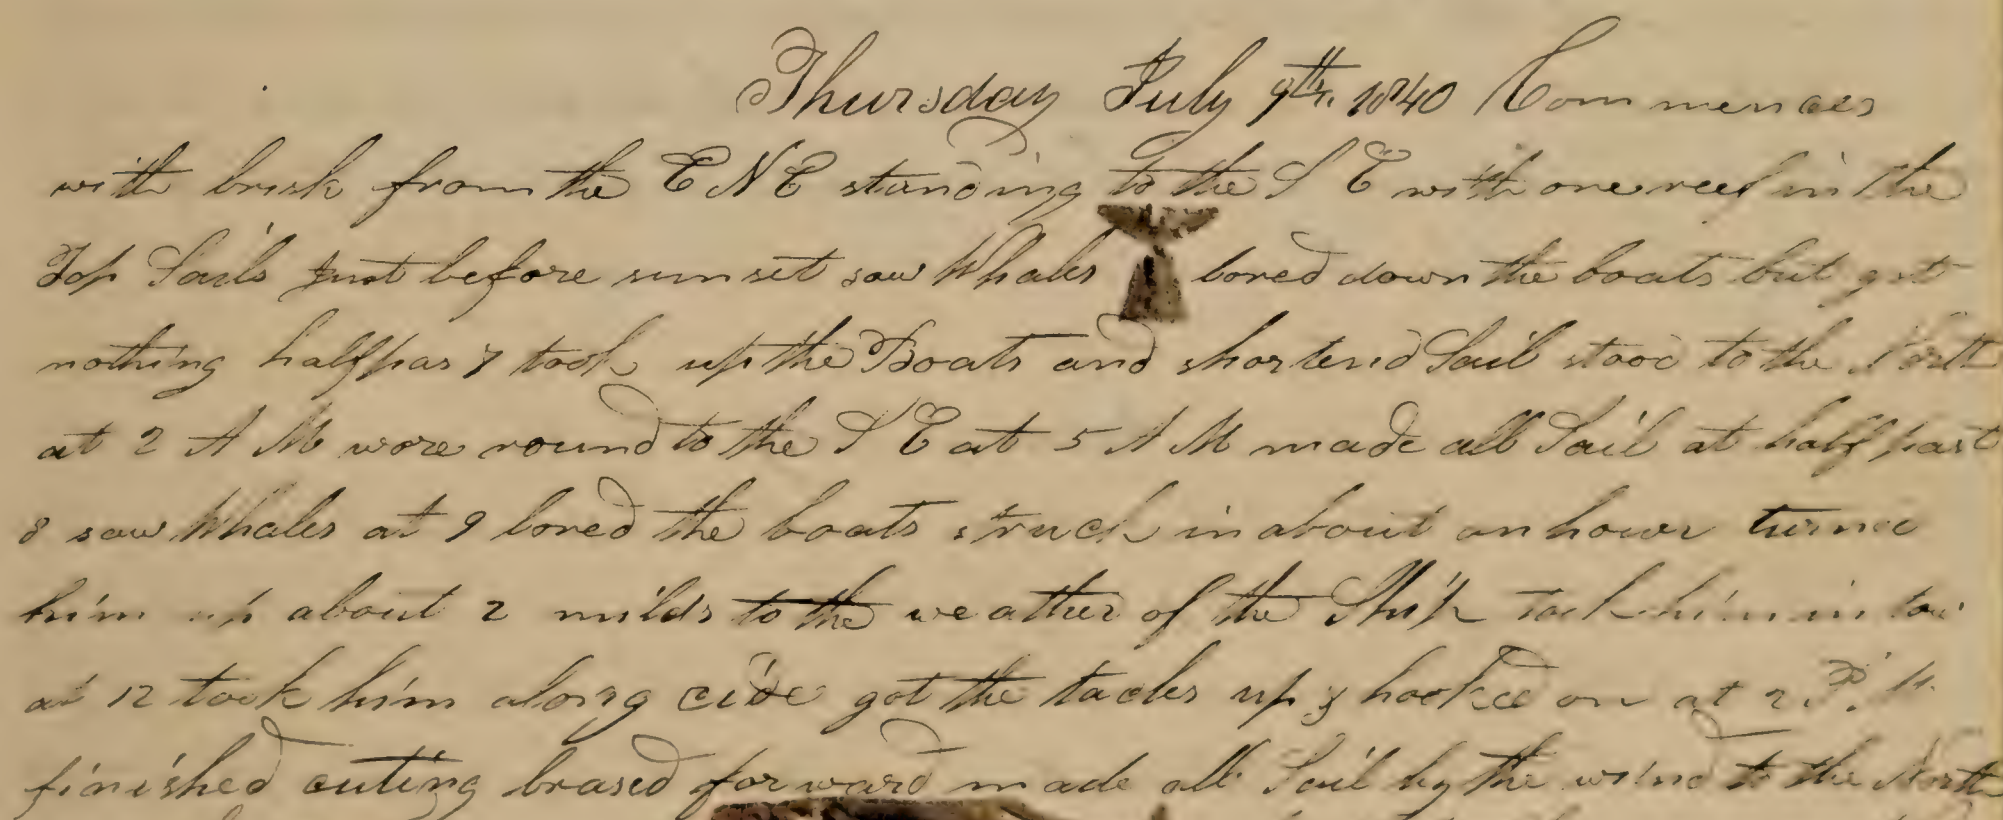 Thursday July 9th. 1840 Commences
with brisk from the E N E standing to the S E with one reef in the
Top Sails Just before sun set saw Whales lored down the boats but got
nothing half pas 7 took up the Boats and shortend Sail stood to the North
at 2 A M wore round to the S E at 5 A M made all Sail at half past
8 saw Whales at 9 lored the boats struck in about an hour turned
him up about 2 milds to the weather of the Ship took him in tow
at 12 took him along cide got the tacles up & hooked on at 2 P. M.
finished cuting brased forward made all Sail by the wind to the North